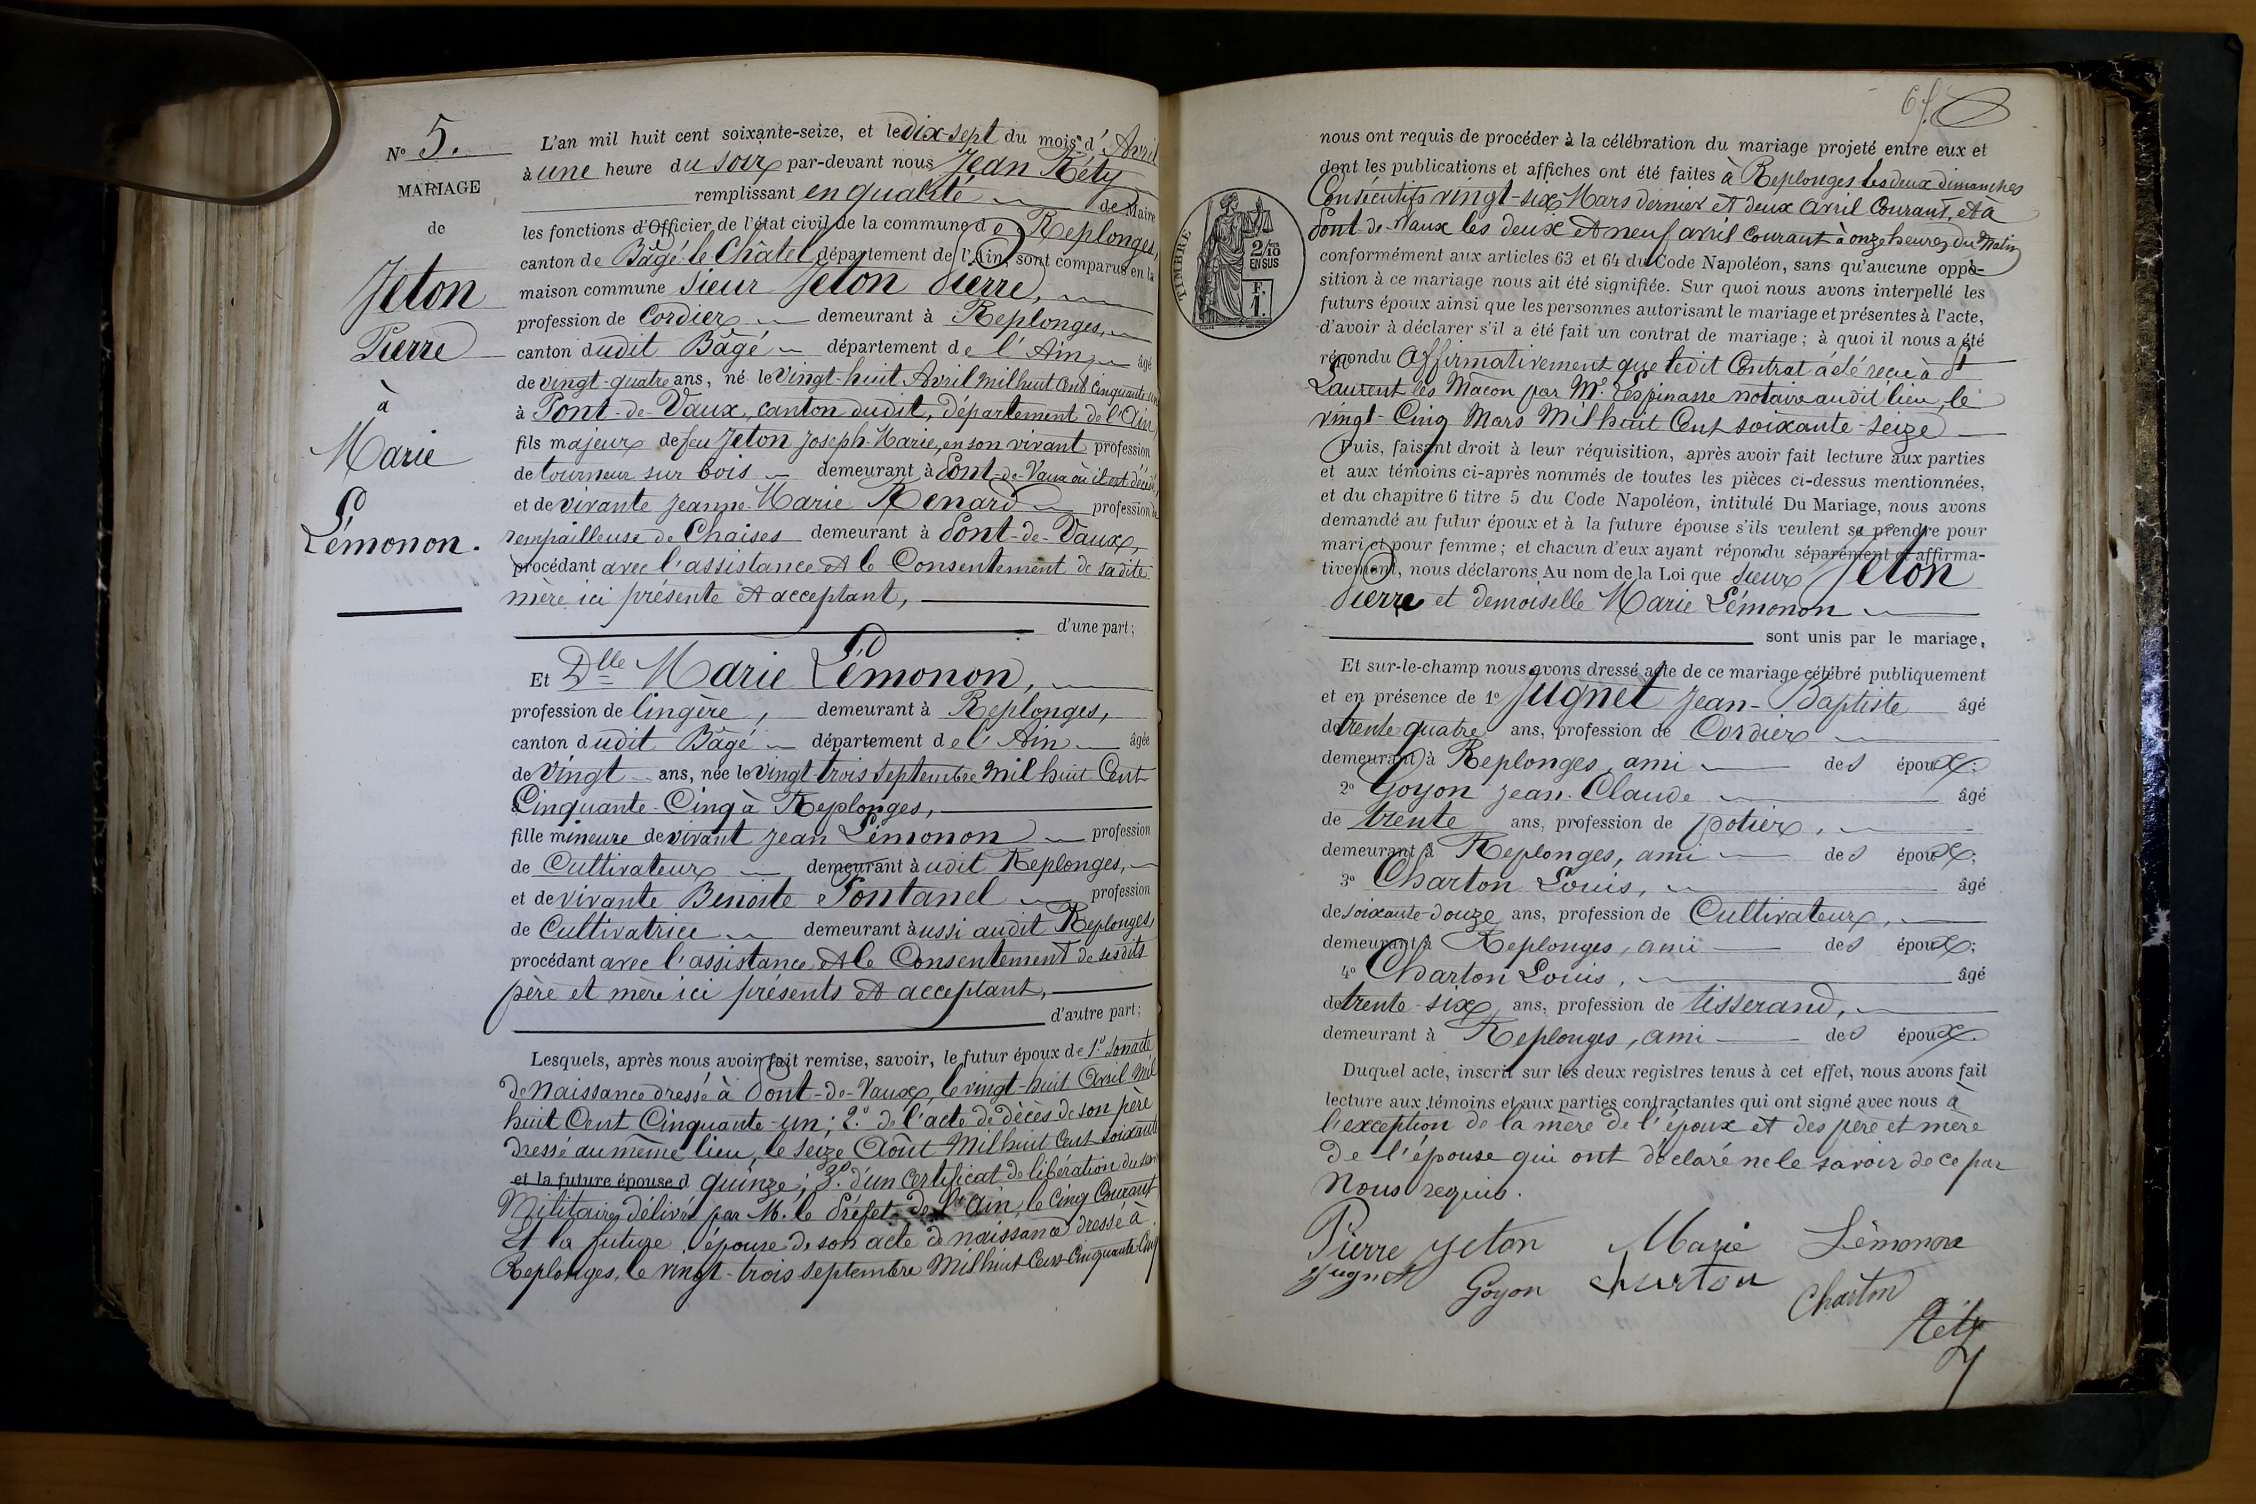 N° 5.
MARIAGE
de
Jeton
Pierre
à
Marie
Lémonon.
L'an mil huit cent soixante-seize, et le dix-sept du mois d'Avril
à une heure du soir par-devant nous Jean Réty
remplissant en qualité de Maire
les fonctions d'Officier de l'état civil de la commune de Replonges,
canton de Bâgé-le-Châtel département de l'Ain, sont comparus en la
maison commune sieur Jeton Pierre,
profession de Cordier demeurant à Replonges,
canton dudit Bâgé département de l'Ain, âgé
de vingt-quatre ans, né le vingt-huit Avril mil huit Cent Cinquante un
à Pont-de-Vaux, canton dudit, département de l'Ain,
fils majeur de feu Jeton Joseph-Marie, en son vivant profession
de tourneur sur bois demeurant à Pont-de-Vaux où il est décédé,
et de vivante Jeanne-Marie Renard profession de
rempailleuse de Chaises demeurant à Pont-de-Vaux,
procédant avec l'assistance et le Consentement de sadite
mère ici présente et acceptant,
d'une part;
Et Dlle Marie Lémonon,
profession de lingère, demeurant à Replonges,
canton dudit Bâgé département de l'Ain âgée
de Vingt ans, née le vingt-trois septembre mil huit Cent
Cinquante-Cinq à Replonges,
fille mineure de vivant Jean Lémonon profession
de Cultivateur demeurant àudit Replonges,
et de vivante Benoite Fontanel profession
de Cultivatrice demeurant àussi audit Replonges,
procédant avec l'assistance et le Consentement de sesdits
père et mère ici présents et acceptant,
d'autre part;
Lesquels, après nous avoir fait remise, savoir, le futur époux de 1° son acte
de naissance dressé à Pont-de-Vaux, le vingt-huit Avril mil
huit Cent Cinquante-un; 2° de l'acte de décès de son père
dressé au même lieu, le seize Août mil huit Cent soixante
et la future épouse d quinze; 3° d'un certificat de libération du service
Militaire délivré par M. le Préfet de l'Ain, le Cinq Courant
Et la future épouse de son acte de naissance dressé à
Replonges, le vingt-trois septembre mil huit Cent Cinquante-Cinq
TIMBRE
2/10
EN SUS
F.
1.
nous ont requis de procéder à la célébration du mariage projeté entre eux et
dont les publications et affiches ont été faites à Replonges les deux dimanches
Consécutifs vingt-six Mars dernier et deux avril Courant, et à
Pont-de-Vaux les deux et neuf avril Courant à onze heures du Matin
conformément aux articles 63 et 64 du Code Napoléon, sans qu'aucune oppo-
sition à ce mariage nous ait été signifiée. Sur quoi nous avons interpellé les
futurs époux ainsi que les personnes autorisant le mariage et présentes à l'acte,
d'avoir à déclarer s'il a été fait un contrat de mariage; à quoi il nous a été
répondu affirmativement que ledit Contrat a été reçu à St
Laurent lès Mâcon par Me Lespinasse notaire audit lieu, le
vingt-Cinq Mars Mil huit Cent soixante-seize
Puis, faisant droit à leur réquisition, après avoir fait lecture aux parties
et aux témoins ci-après nommés de toutes les pièces ci-dessus mentionnées,
et du chapitre 6 titre 5 du Code Napoléon, intitulé Du Mariage, nous avons
demandé au futur époux et à la future épouse s'ils veulent se prendre pour
mari et pour femme; et chacun d'eux ayant répondu séparément et affirma-
tivement, nous déclarons Au nom de la Loi que sieur Jeton
Pierre et demoiselle Marie Lémonon
sont unis par le mariage,
Et sur-le-champ nous avons dressé acte de ce mariage célébré publiquement
et en présence de 1° Jugnet Jean-Baptiste âgé
de trente quatre ans, profession de Cordier
demeurant à Replonges, ami des époux;
2° Goyon Jean-Claude âgé
de trente ans, profession de potier,
demeurant à Replonges, ami des époux;
3° Charton Louis, âgé
de soixante-douze ans, profession de Cultivateur,
demeurant à Replonges, ami des époux;
4° Charton Louis, âgé
de trente-six ans, profession de tisserand,
demeurant à Replonges, ami des époux.
Duquel acte, inscrit sur les deux registres tenus à cet effet, nous avons fait
lecture aux témoins et aux parties contractantes qui ont signé avec nous à
l'exception de la mère de l'époux et des père et mère
de l'épouse qui ont déclaré ne le savoir de ce par
nous requis.
Pierre Jeton Marie Lémonon
Jugnet Goyon Charton Charton
Réty